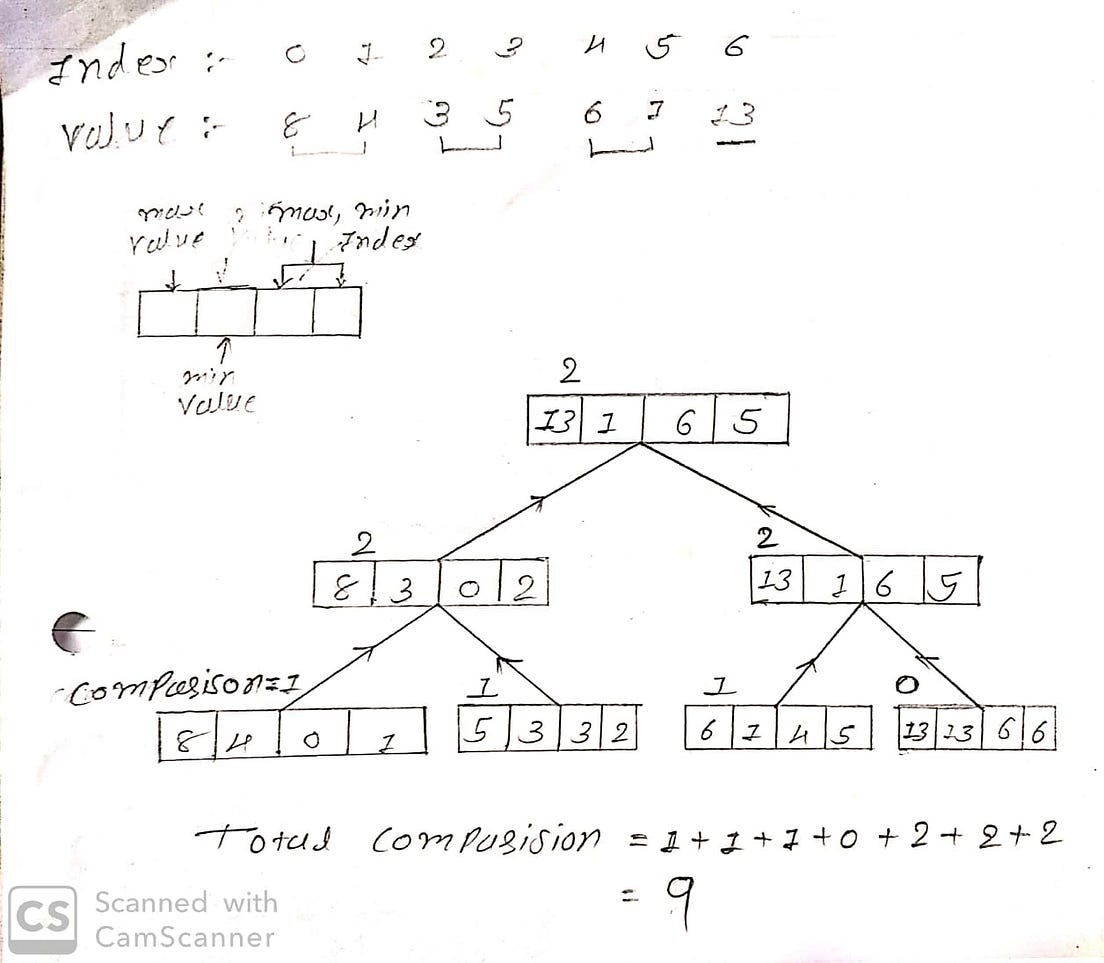 Index :- 0 1 2 3 4 5 6
value :- 8 4 3 5 6 1 13
max , max, min
value Index
min
value
2
13 1 6 5
2 2
8 3 0 2 13 1 6 5
comparison=1 1 1 0
8 4 0 1 5 3 3 2 6 1 4 5 13 13 6 6
Total comparision = 1+1+1+0+2+2+2
= 9
CS Scanned with
CamScanner